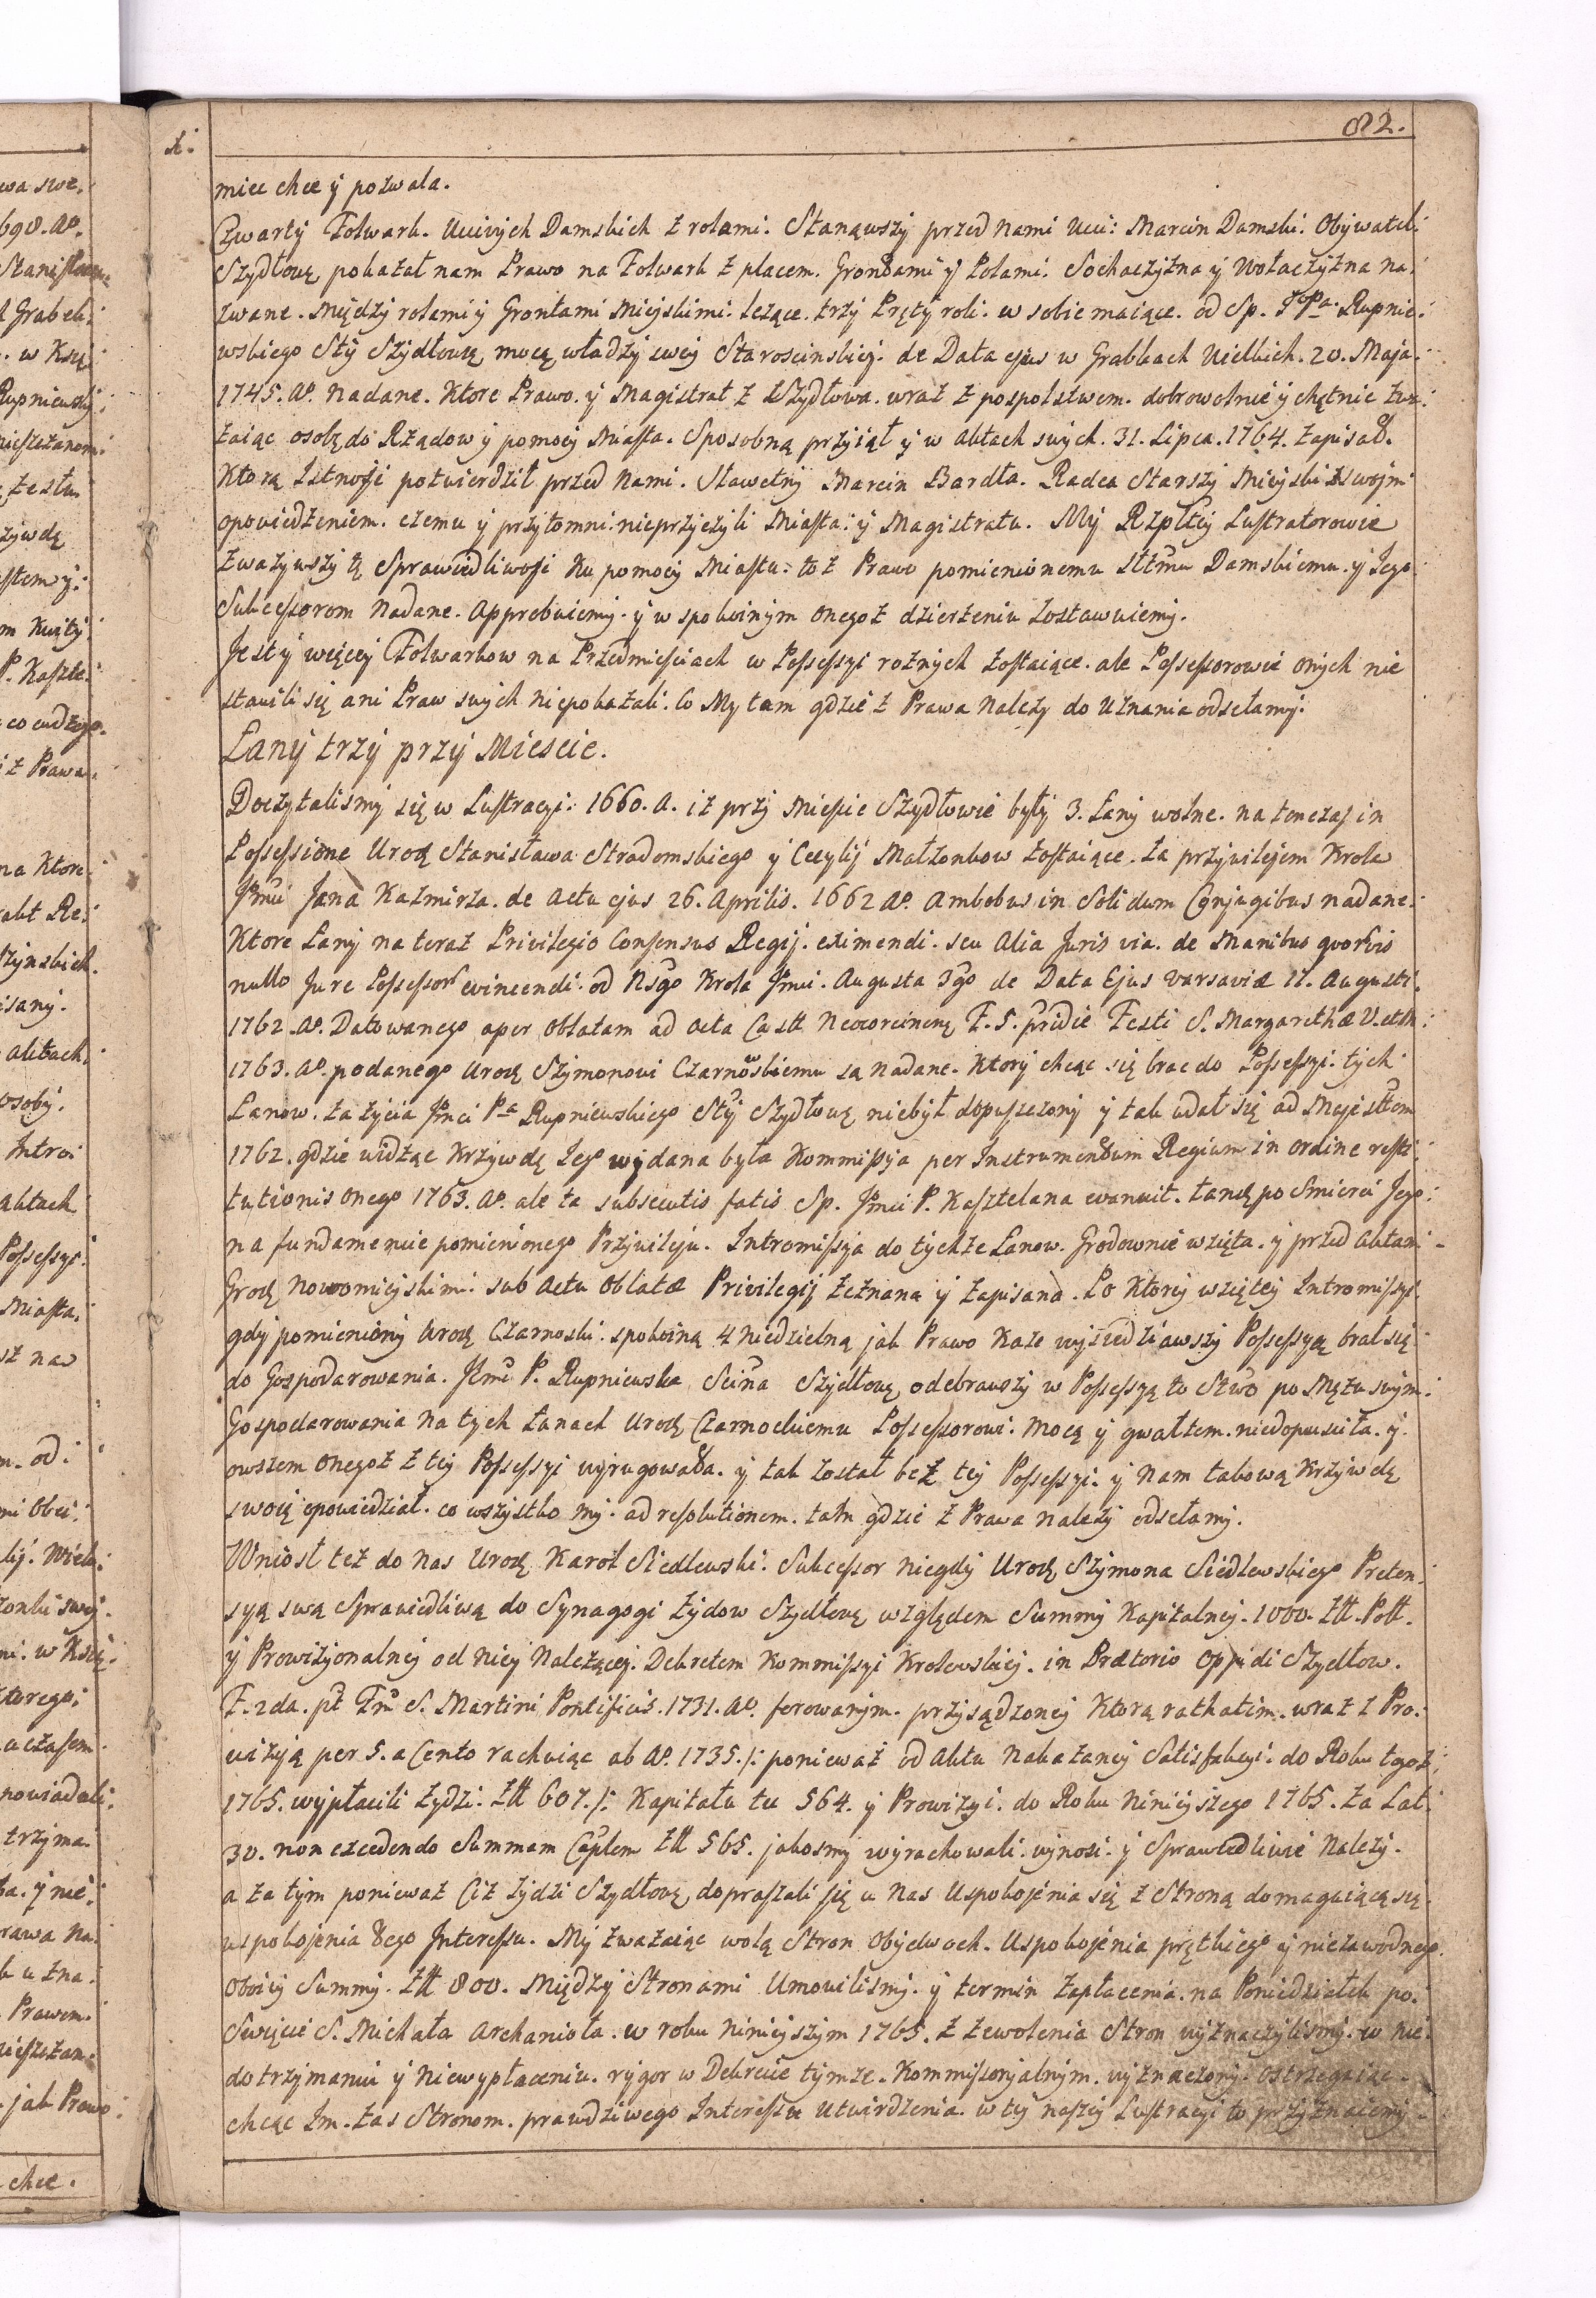 82.
miec chce ÿ pozwala.
Czwartÿ Folwark. Uccivÿch Damskich z rolami. Stanąwszÿ przed nami Ucci: Marcin Damski. Obÿwatel:
Szÿdłowę pokazał nam Prawo na Folwark z placem. Gronłami ÿ Polami. Sochaczÿzna ÿ Wołaczÿzna na:
zwane. Mięḋzÿ rolami ÿ Grontami Mieÿskimi: leząće. trzÿ Prętÿ roli. w sobie maiące. od Sp. J Pa. Rupnie:
wskiego Stÿ Szÿdłowę mocą władzÿ sweÿ Staroscinskieÿ. de Data ejus w Grabkach Wielkich. 20. Maja.
1745. Aº. nadane. Ktore Prawo. ÿ Magistrat z Szÿdłowa. wraz z pospolstwem. dobrowolnie ÿ chętnie zwa:
zaiąc osobę do Rządow ÿ pomocÿ Miasta. Sposobną prziiął ÿ w aktach swÿch. 31. Lipca. 1764. zapisał.
Ktorą Istnosci potwierdził przed nami. Sławetnÿ Marcin Bardła. Radca Starszÿ Mieÿski z swojm
opowiedzeniem. czemu ÿ przÿtomni nieprzÿczÿli Miasta: ÿ Magistratu. Mÿ Rzpltÿ Lustratorowie
zwazÿwszÿ tę Sprawiedliwosc ku pomocÿ Miasta: toz Prawo pomienionemu Sttmu Damskiemu. ÿ Jego
Sukcessorom nadane. Approbuiemÿ. ÿ w spokoinÿm onegoz dzierzeniu zostawuiemÿ.
Jest ÿ więceÿ Folwarkow na Przedmiesciach w Possessyi roznÿch zostaiące. ale Possessorowie onÿch nie
stawili się ani Praw swÿch niepokazali. Co My tam gdzie z Prawa nalezy do uznania odsełamÿ.
Łanÿ trzÿ przÿ Miescie.
Doczÿtalismÿ się w Lustracyi. 1660. A. iz przÿ Miescie Szÿdłowie bÿłÿ 3. Łanÿ wolne. na tenczas in
Possessione Urodz Stanisława Stradomskiego ÿ Cecylij Małzonkow zostaiące. za przÿwilejem Krola
Jmci Jana Kazmirza. de Actu ejus 26. Aprilis. 1662 Aº. Ambobus in Solidum Conjugibus nadane.
Ktore Łanÿ na teraz Privilegio Consensus Regij. eximendi. seu alia Juris via. de Manibus quorvis
nullo Jure Possessor evincendi. od Nsgo Krola Jmci. Augusta 3go de Data Ejus Varsaviæ 11. Augusti.
1762. Aº. Datowanego a per Oblatam ad Acta Castr Neocorcinenę F. 5. pridie Festi S. Margarethæ V. et M:
1763. Aº. podanego Urodz Szÿmonowi Czarnowskiemu są nadane. Ktorÿ chcąc się brac do Possessyi. tÿch
Łanow. za zÿcia Jmci Pa Rupniewskiego Stÿ Szÿdłowę niebÿł dopuszczonÿ ÿ tak udał się ad Majesttem
1762. gdzie widząc Krzÿwdę Jego wÿdana była Kommissyja per Instrumentum Regium in ordine resti:
tutionis onego 1763. Aº. ale ta subsecutis fatis Sp. Jmci P. Kasztelana evanuit. tandę po Smierci Jego:
na fundamencie pomienionego Przÿwileju. Intromissyja do tÿchze Łanow. Grodownie wzięta. ÿ przed aktami
Grodz Nowomieÿskimi sub Actu Oblatæ Privilegij zeznana ÿ zapisana. Po Ktoreÿ wzięteÿ Intromissyi
gdÿ pomienionÿ Urodz Czarnoski. spokoiną 4 niedzielną jak Prawo Kaze wÿsiedziawszÿ Possessyą brał się
do Gospodarowania. Jmci P. Rupniewska Scina Szÿdłowę odebrawszÿ w Possessyą to Stwo po Męzu swÿm:
Gospodarowania na tych Łanach Urodz Czarnockiemu Possessorowi. mocą ÿ gwałtem. niedopusciła. ÿ.
owszem onegoz z teÿ Possessyi wÿrugowała. ÿ tak został bez teÿ Possessyi. ÿ nam takową Krzÿwdę
swoię opowiedział. co wszystko mÿ. ad resolutionem. tam gdzie z Prawa nalezÿ odsełamÿ.
Wniosł tez do nas Urodz Karol Siedlewski. Sukcessor niegdÿ Urodz Szÿmona Siedlewskiego Preten:
syą swą Sprawiedliwą do Synagogi Zÿdow Szydłowę względem Summÿ Kapitalneÿ. 1000. Ztt. Poll.
ÿ Prowizÿonalneÿ od nieÿ nalezącеÿ. Dekretem Kommissyi Krolewskieÿ. in Prætorio Oppidi Szydłow.
F. 2da. pt Fm S. Martini Pontificis. 1731. Aº. ferowanÿm. przÿsądzoneÿ Ktorą rathatim. wraz z Pro:
wizÿą per 5. a Cento rachuiąc ab Aº. 1735./: poniewaz od Aktu nakazaneÿ Satisfakcyi. do Roku tegoz
1765. wÿpłacili Zydzi. Ztt 607./: Kapitału tu 564. ÿ Prowizyi. do Roku niniejszego 1765. za Lat.
30. non excedendo Summam Caplem Ztt 565. jakosmÿ wyrachowali. wÿnosi. ÿ Sprawiedliwie nalezÿ.
a za tÿm poniewaz Ciz Zydzi Szydłovę dopraszali się u nas Uspokojenia się z Stroną domagaiącą się.
uspokojenia tego Interessu. Mÿ zwazaiąc wolą Stron Obydwoch. Uspokojenia prętkiego ÿ niezawodnego.
Oboiеÿ Summÿ. Ztt 800. Międzÿ Stronami Umowilismÿ. ÿ termin zapłacenia. na Poniedziałek po.
Swięcie S. Michała Archanioła. w roku niniejszÿm 1765. z zewolenia Stron wÿznaczÿlismÿ. w nie:
dotrzÿmaniu ÿ niewypłaceniu. rÿgor w Dekrecie tÿmze. Kommissoryjalnÿm. wÿznaczonÿ. ostrzegaiąc.
chcąc Im. zas Stronom. prawdziwego Interessu utwirdzenia. w teÿ naszeÿ Lustracyi to przÿznaiemÿ.